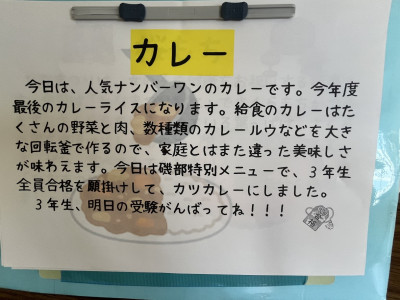 カレー
今日は、人気ナンバーワンのカレーです。今年度
最後のカレーライスになります。給食のカレーはた
くさんの野菜と肉、数種類のカレールウなどを大き
な回転釜で作るので、家庭とはまた違った美味しさ
が味わえます。今日は磯部特別メニューで、３年生
全員合格を願掛けして、カツカレーにしました。
３年生、明日の受験がんばってね！！！